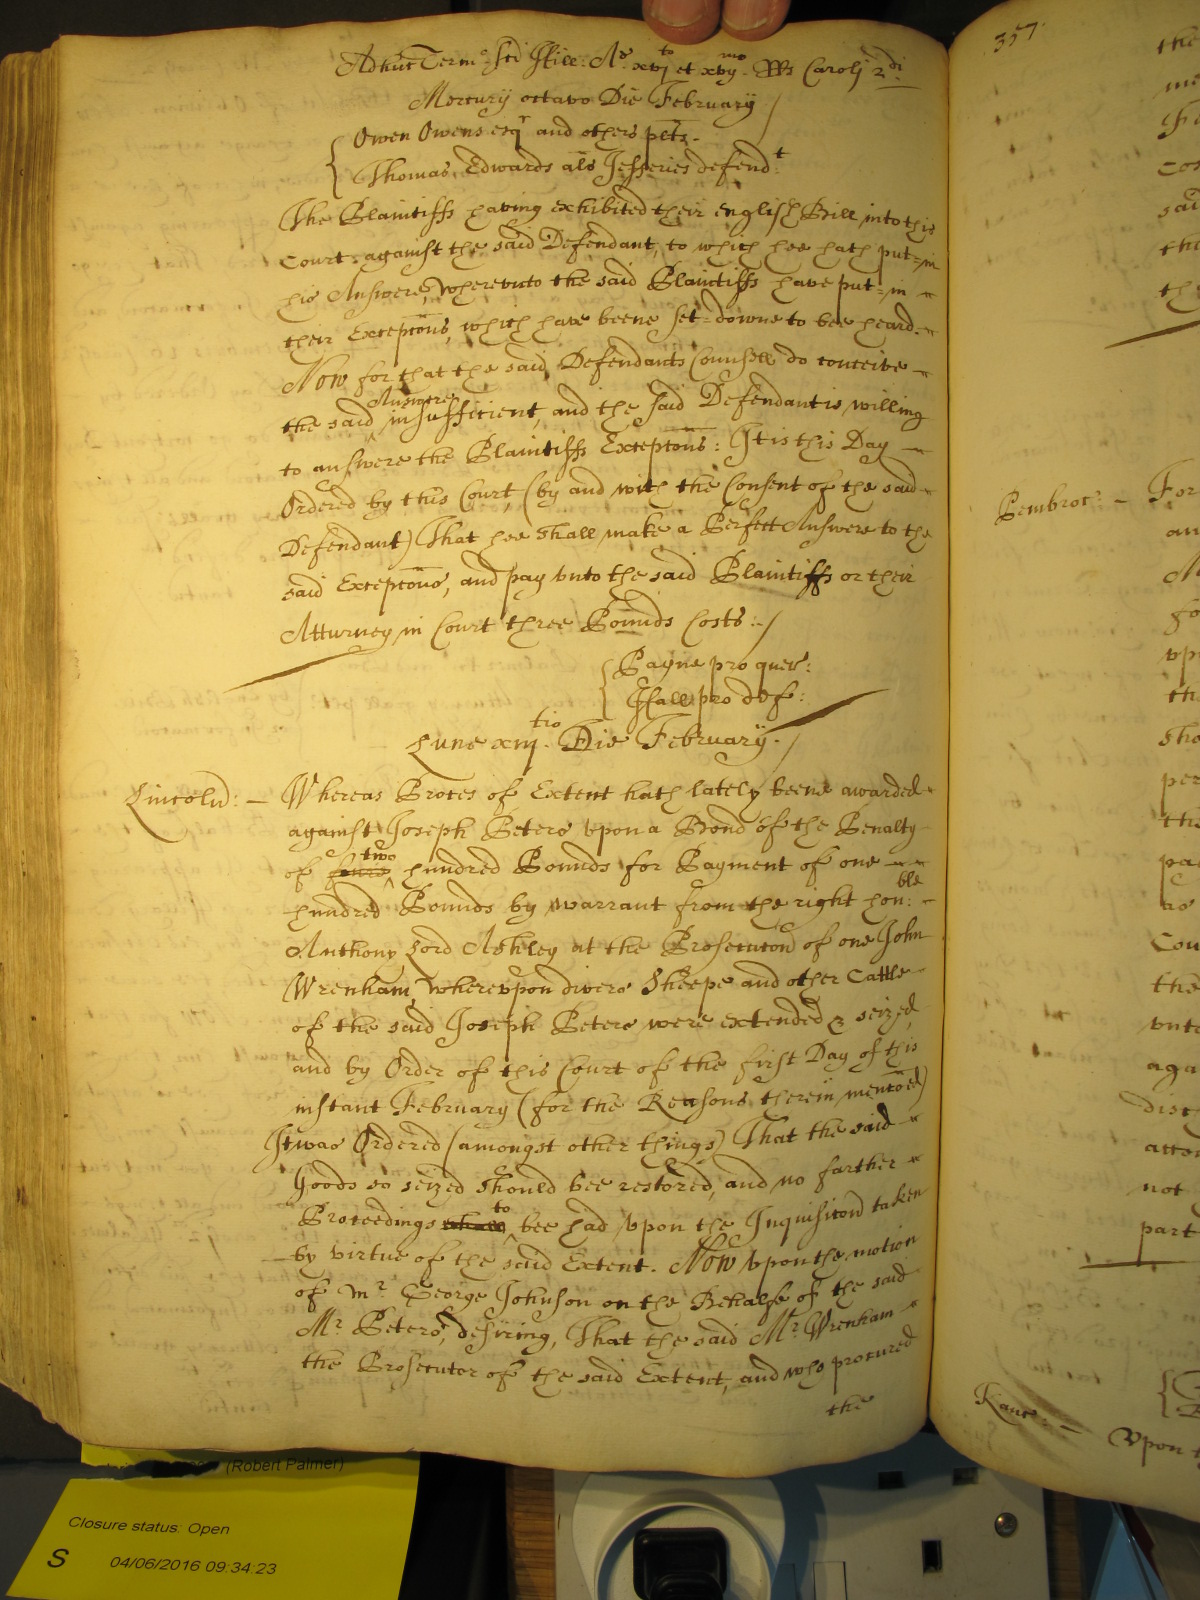 Adhuc Term.o Sci Hill: Ao xvjto et xvijmo RRs Caroli 2di
Mercurij octavo Die February
Owen Owens esqr and others plts.
Thomas Edwards als Jefferies defendt
The Plaintiffs having exhibited their english Bill into this
Court against the said Defendant, to which hee hath put=in
his Answere, Wherevnto the said Plaintiffs have put=in
their Exceptons, which have beene set=downe to bee heard.
Now for that the said Defendants Counsell do conceive
the said Answere insufficient, and the said Defendant is willing
to answere the Plaintiffs Exceptons: It is this Day
Ordered by this Court, (by and with the Consent of the said
Defendant) That hee shall make a Perfect Answere to the
said Exceptons, and pay vnto the said Plaintiffs or their
Atturney in Court three Pounds Costs:
Payne pro quer:
Hall pro def:
Lune xiijtio Die February.
Lincoln: — Whereas Proces of Extent hath lately beene awarded
against Joseph Peters vpon a Bond of the Penalty
of foure two hundred Pounds for Payment of one
hundred Pounds by warrant from the right hon:ble
Anthony Lord Ashley at the Prosecuton of one John
Wrenham, wherevpon divers Sheepe and other Cattle
of the said Joseph Peters were extended & seized,
and by Order of this Court of the first Day of this
instant February (for the Reasons therein mentoed)
It was Ordered (amongst other things) That the said
Goods so seized should bee restored, and no farther
Proceedings to bee had vpon the Inquisicon taken
by virtue of the said Extent. Now vpon the motion
of Mr George Johnson on the Behalfe of the said
Mr Peters, desiring, That the said Mr Wrenham
the Prosecutor of the said Extent, and who procured
the
357.
the
the
Pembroc: — For
an
vpo
th
sho
per
the
pa
as
Cou
the
vnto
aga
disch
atto
not
part
Kanc: —
Vpon t
(Robert Palmer)
Closure status: Open
S 04/06/2016 09:34:23